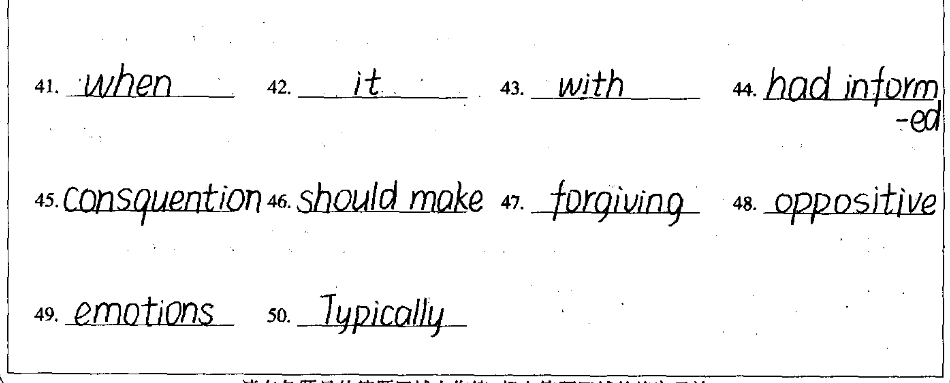 41. when 42. it 43. with 44. had inform
-ed
45. consquention 46. should make 47. forgiving 48. oppositive
49. emotions 50. Typically